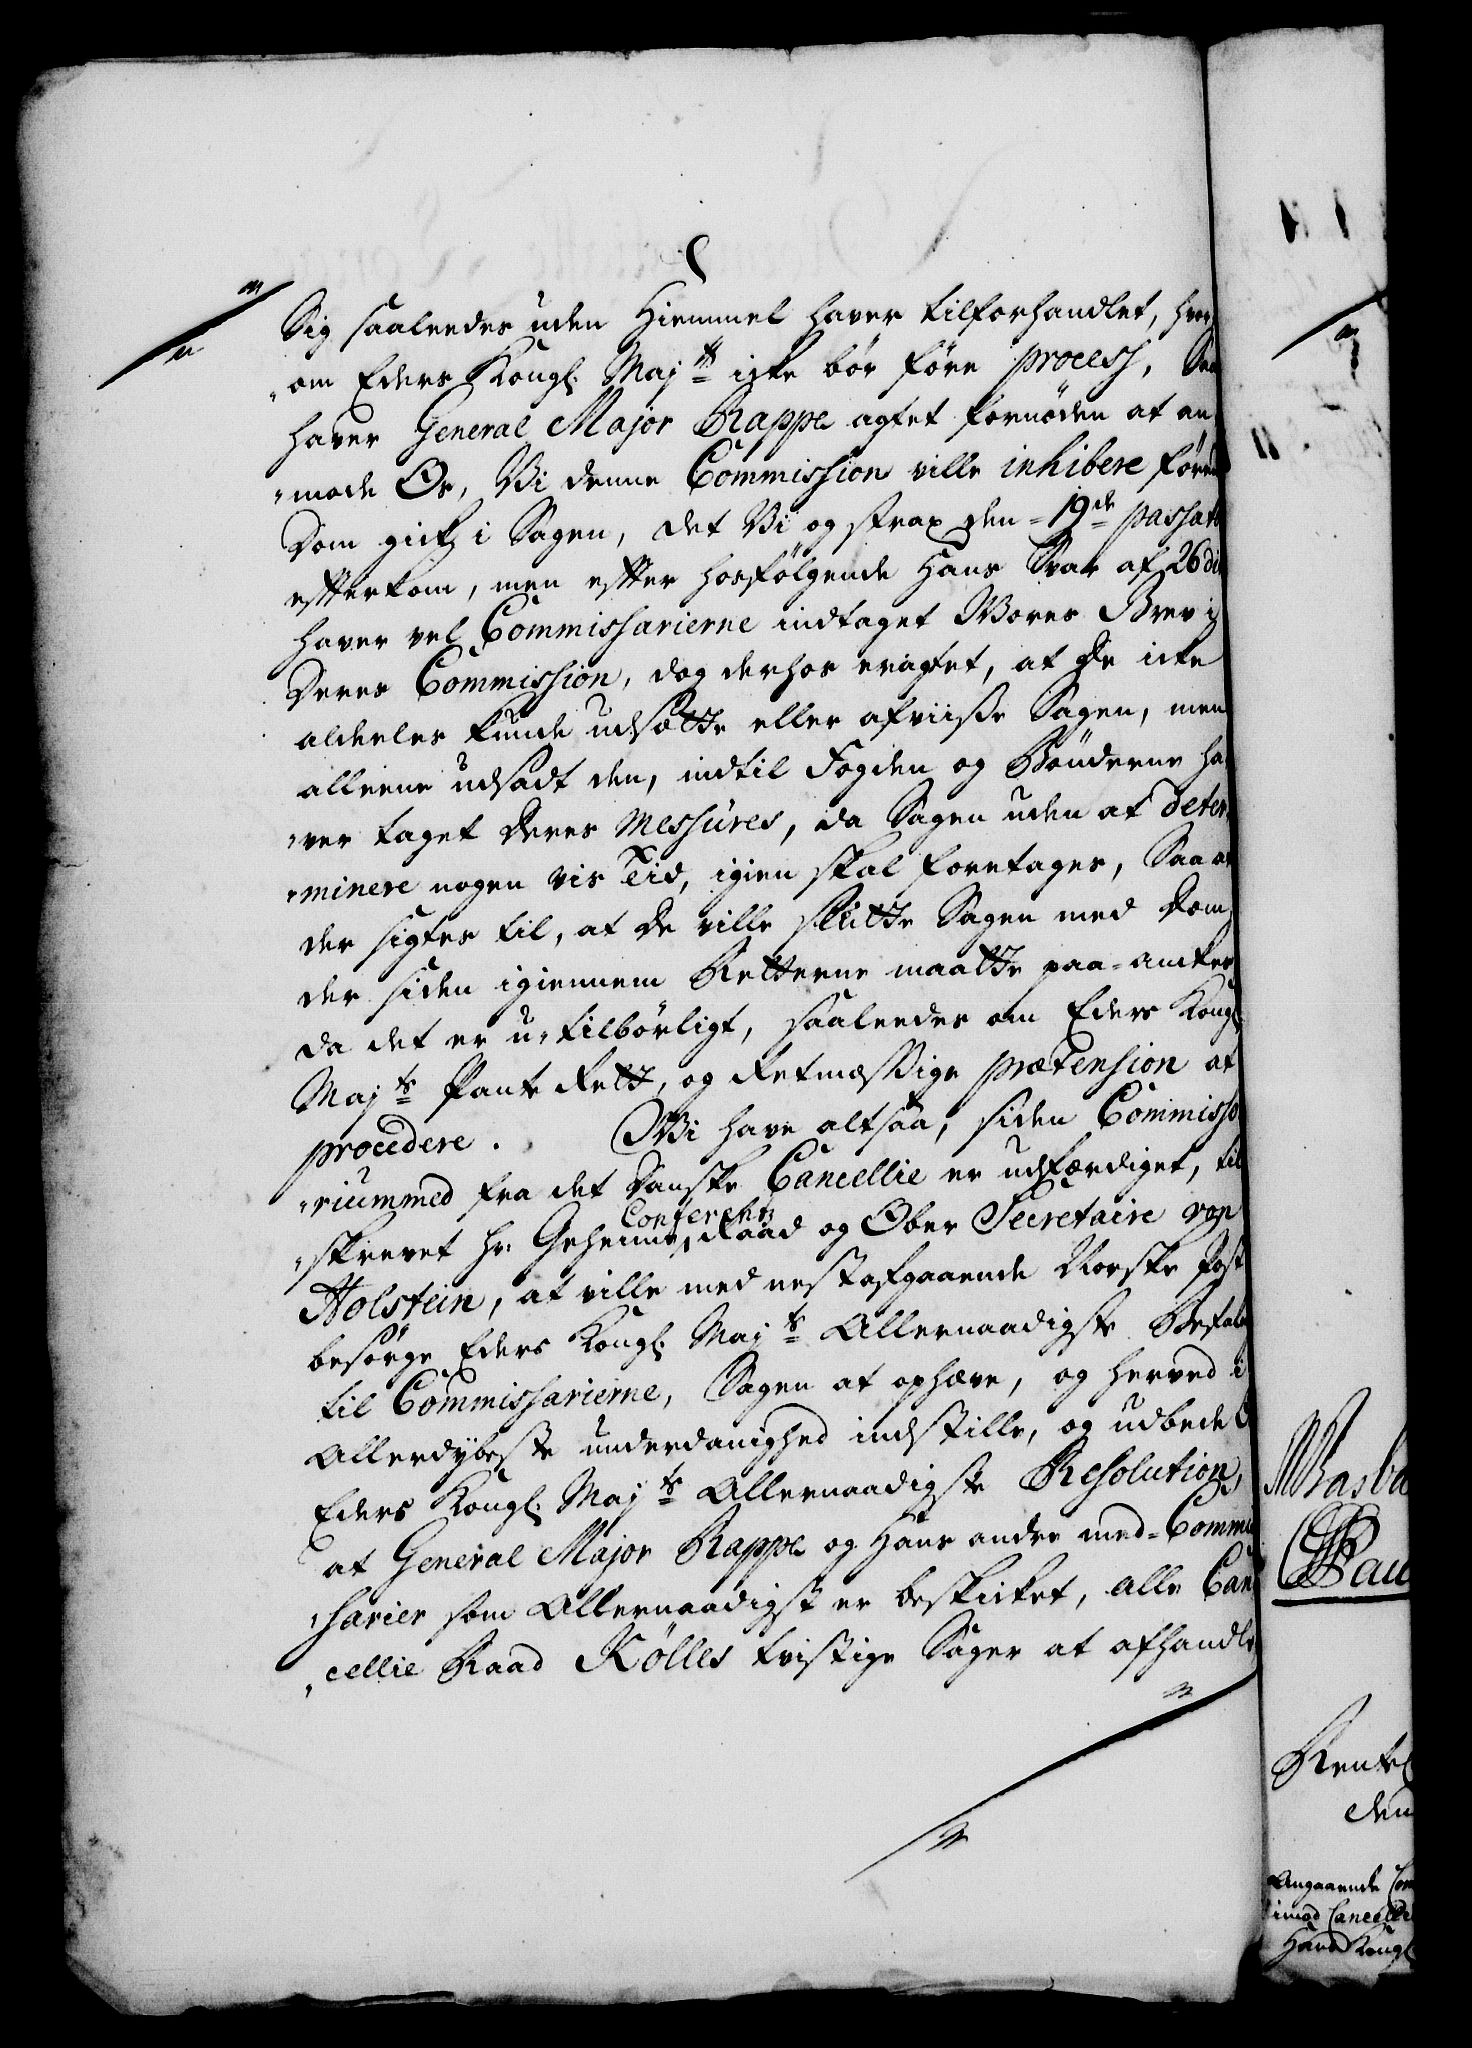 Sig saaleedes uden Hiemmel haver tilforhandlet, hvor
"om Eders Kongl: Maj:ts icke bör före process, Saa
haver General Major Rappe agtet fornöden at an
"mode Os, Vi denne Commission ville inhibere förend
Dom gick i Sagen, det Vi og strax den 19de passato
efterkom, men efter hosfölgende Hans Svar af 26 di
haver vel Commissarierne indtaget Vores Brev i
Deres Commission, dog derhos eragtet, at De icke
aldeeles kunde udsætte eller afviise Sagen, men
alleene udsadt den, indtil Fogden og Bönderne ha
"ver taget Deres Messures, da Sagen uden at deter
"minere nogen vis Tid, igien skal foretages, Saa at
der sigtes til, at De ville slutte Sagen med Dom,
der siden igiennem Retterne maatte paa-anckes
da det er u-tilbörligt, saaleedes om Eders Kongl:
Maj:ts Pante Rett, og Retmæssige prætension at
procedere. Vi have altsaa, siden Commisso
"riummed fra det Danske Cancellie er udfærdiget, til
"skrevet Hr: Geheime Conferentz Raad og Ober Secretaire von
Holstein, at ville med nestafgaaende Norske Post
besörge Eders Kongl: Maj:ts Allernaadigste Befaling
til Commissarierne, Sagen at ophæve, og herved i
Allerdybeste underdanighed indstille, og udbede
Eders Kongl: Maj:ts Allernaadigste Resolution,
at General Major Rappe og Hans andre med-Commis
"sarier som Allernaadigst er beskicket, alle Can
"cellie Raad Kölles tvistige Sager at afhandle
WBasba
Pau
Rente
den
Angaaende Com
imod Cancellie
Hans Kongl